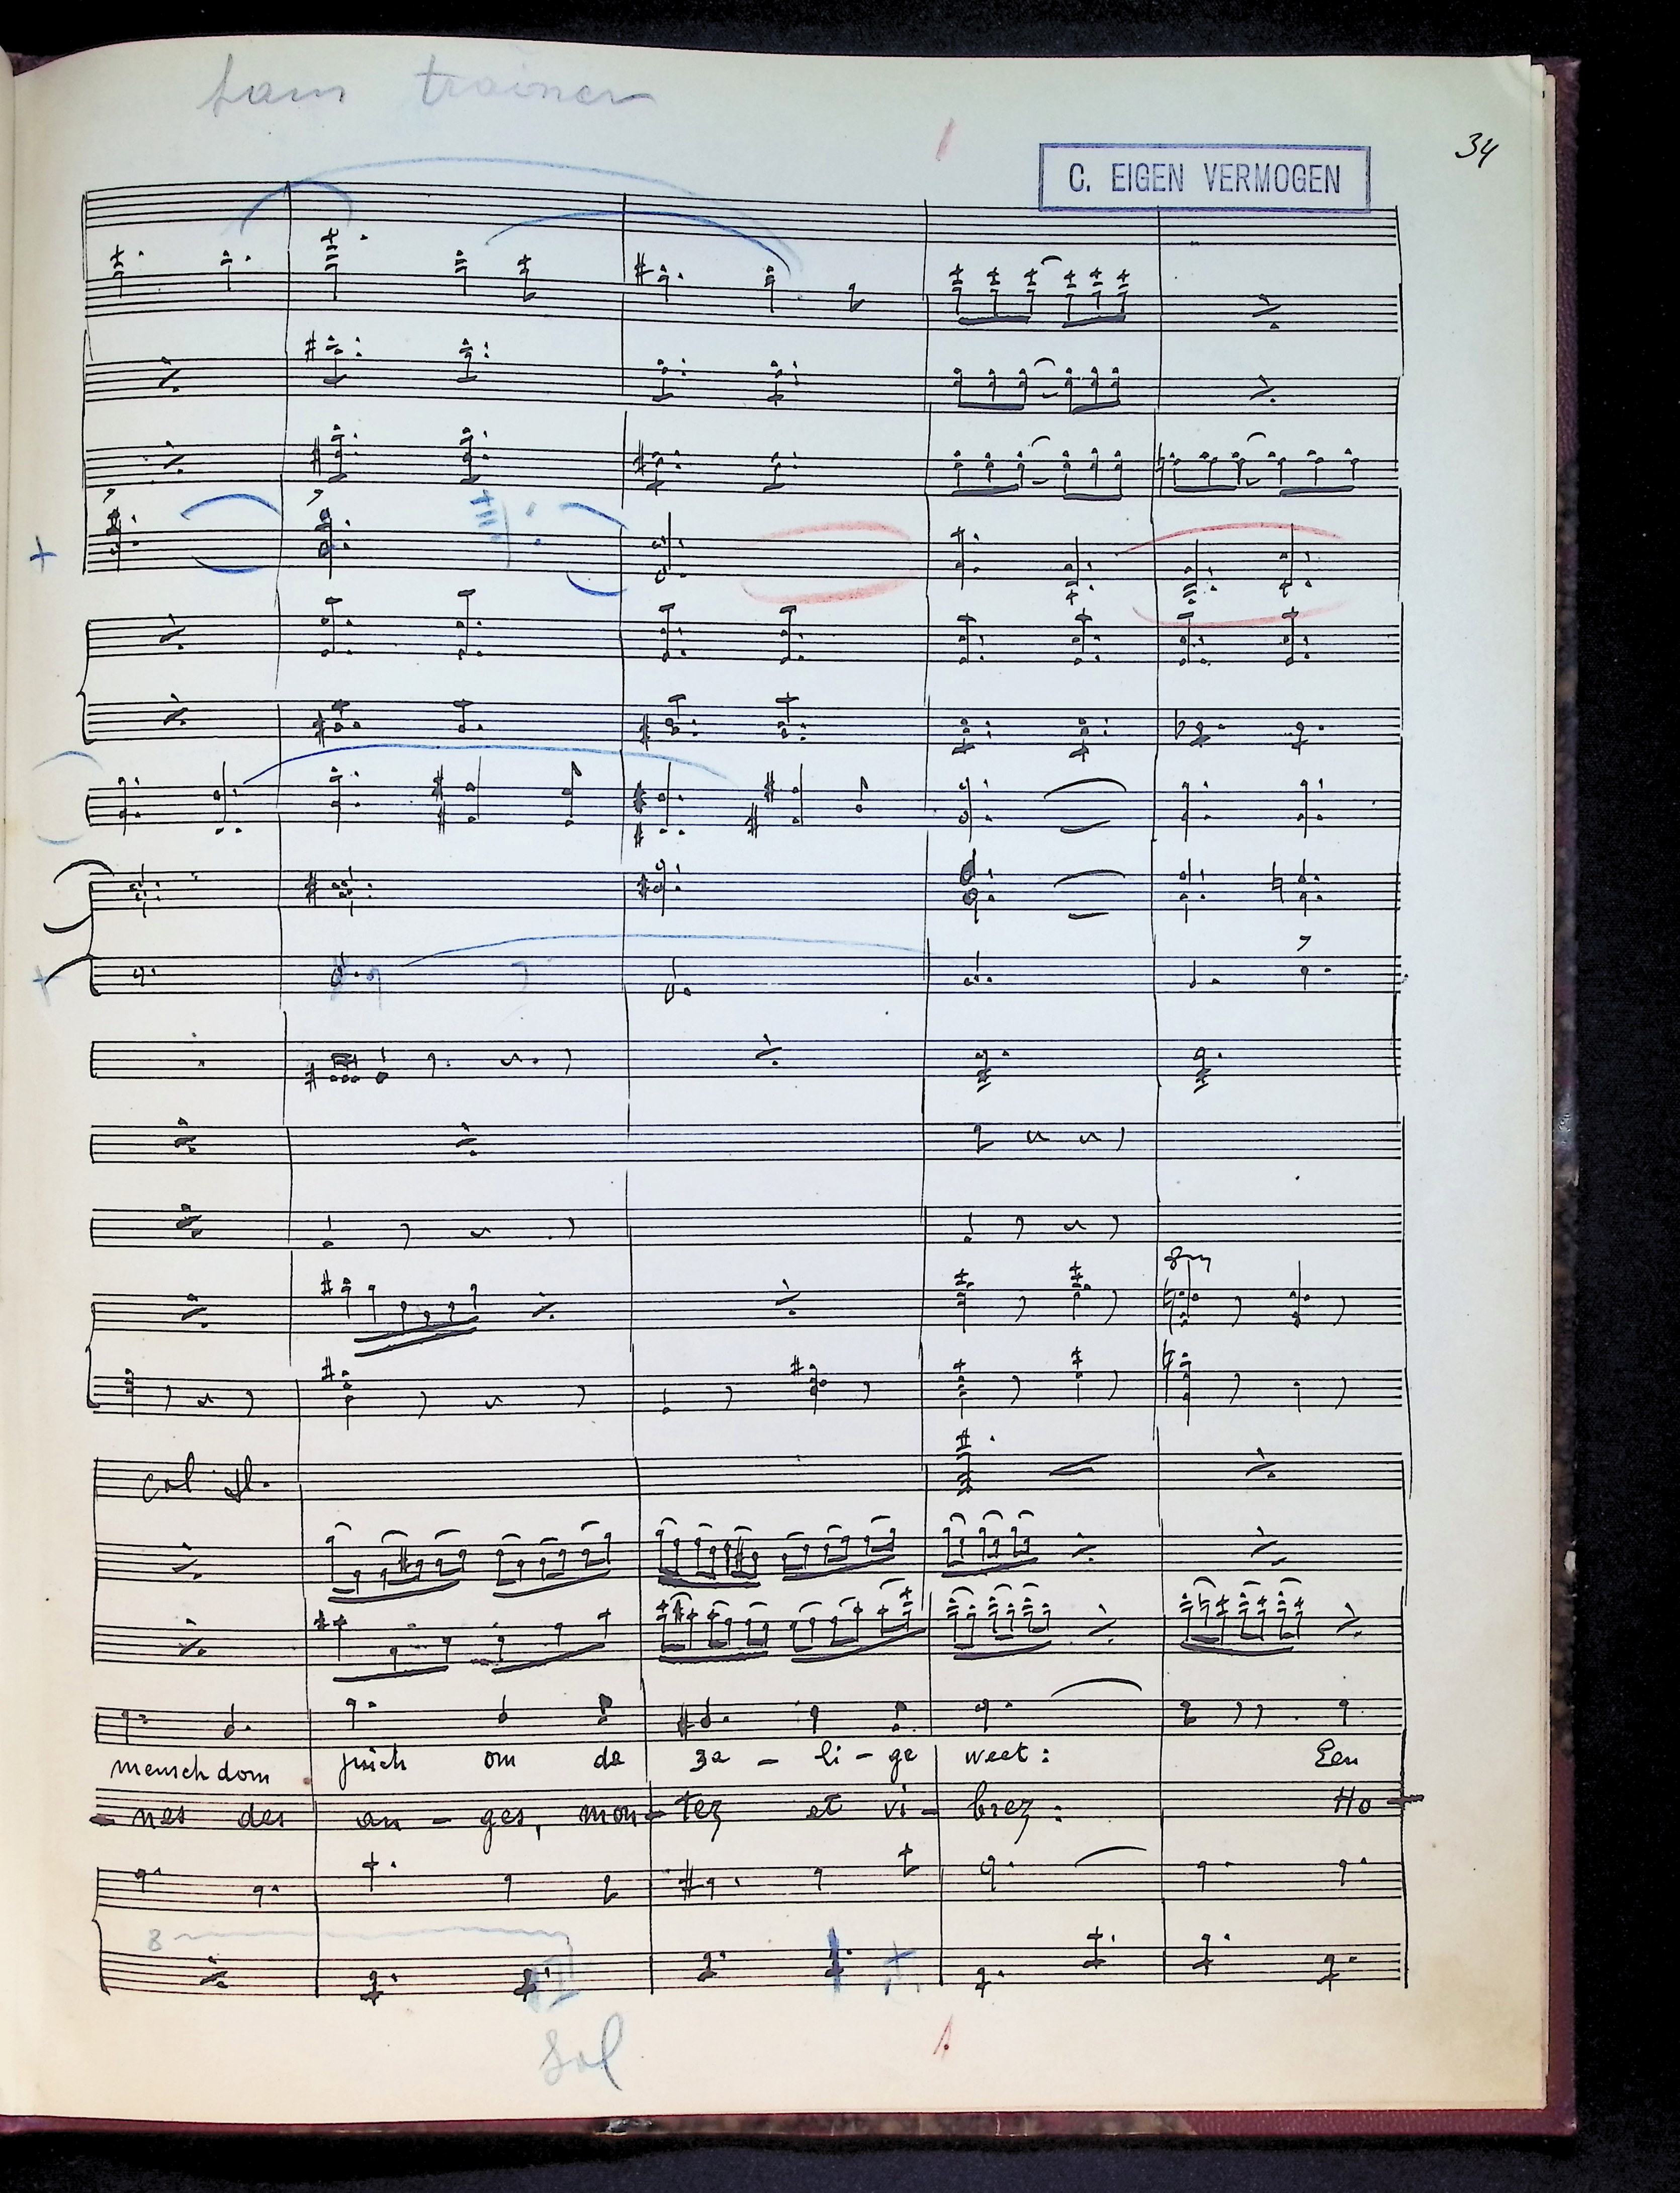 sans trainer
34
C. EIGEN VERMOGEN
8
col fl.
menschdom juich om de za - li - ge weet : Een
- nes des an - ges, mon - tez et vi - brez : Ho -
8
Sol